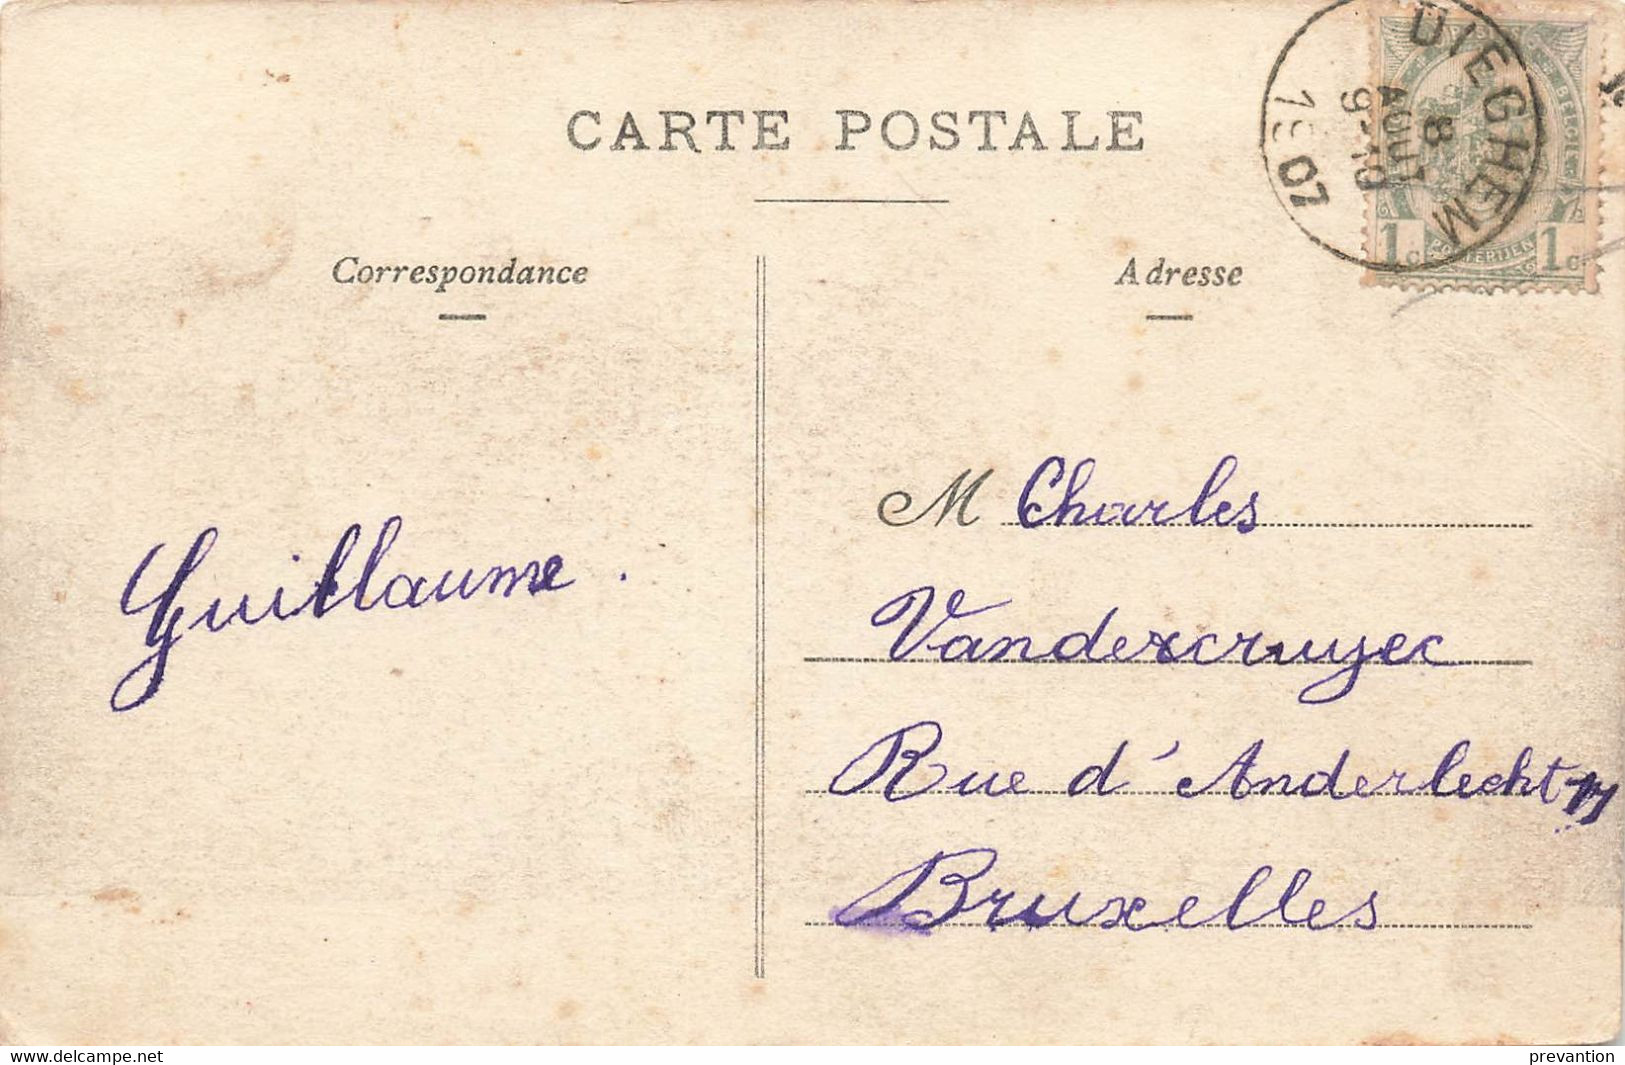 CARTE POSTALE
DIEGHEM
8
AOUT
9-10
1907
1c
POSTERIJEN
1c
Correspondance
Adresse
M Charles
Guillaume.
Vandercruyec
Rue d'Anderlecht
Bruxelles
www.delcampe.net
prevantion